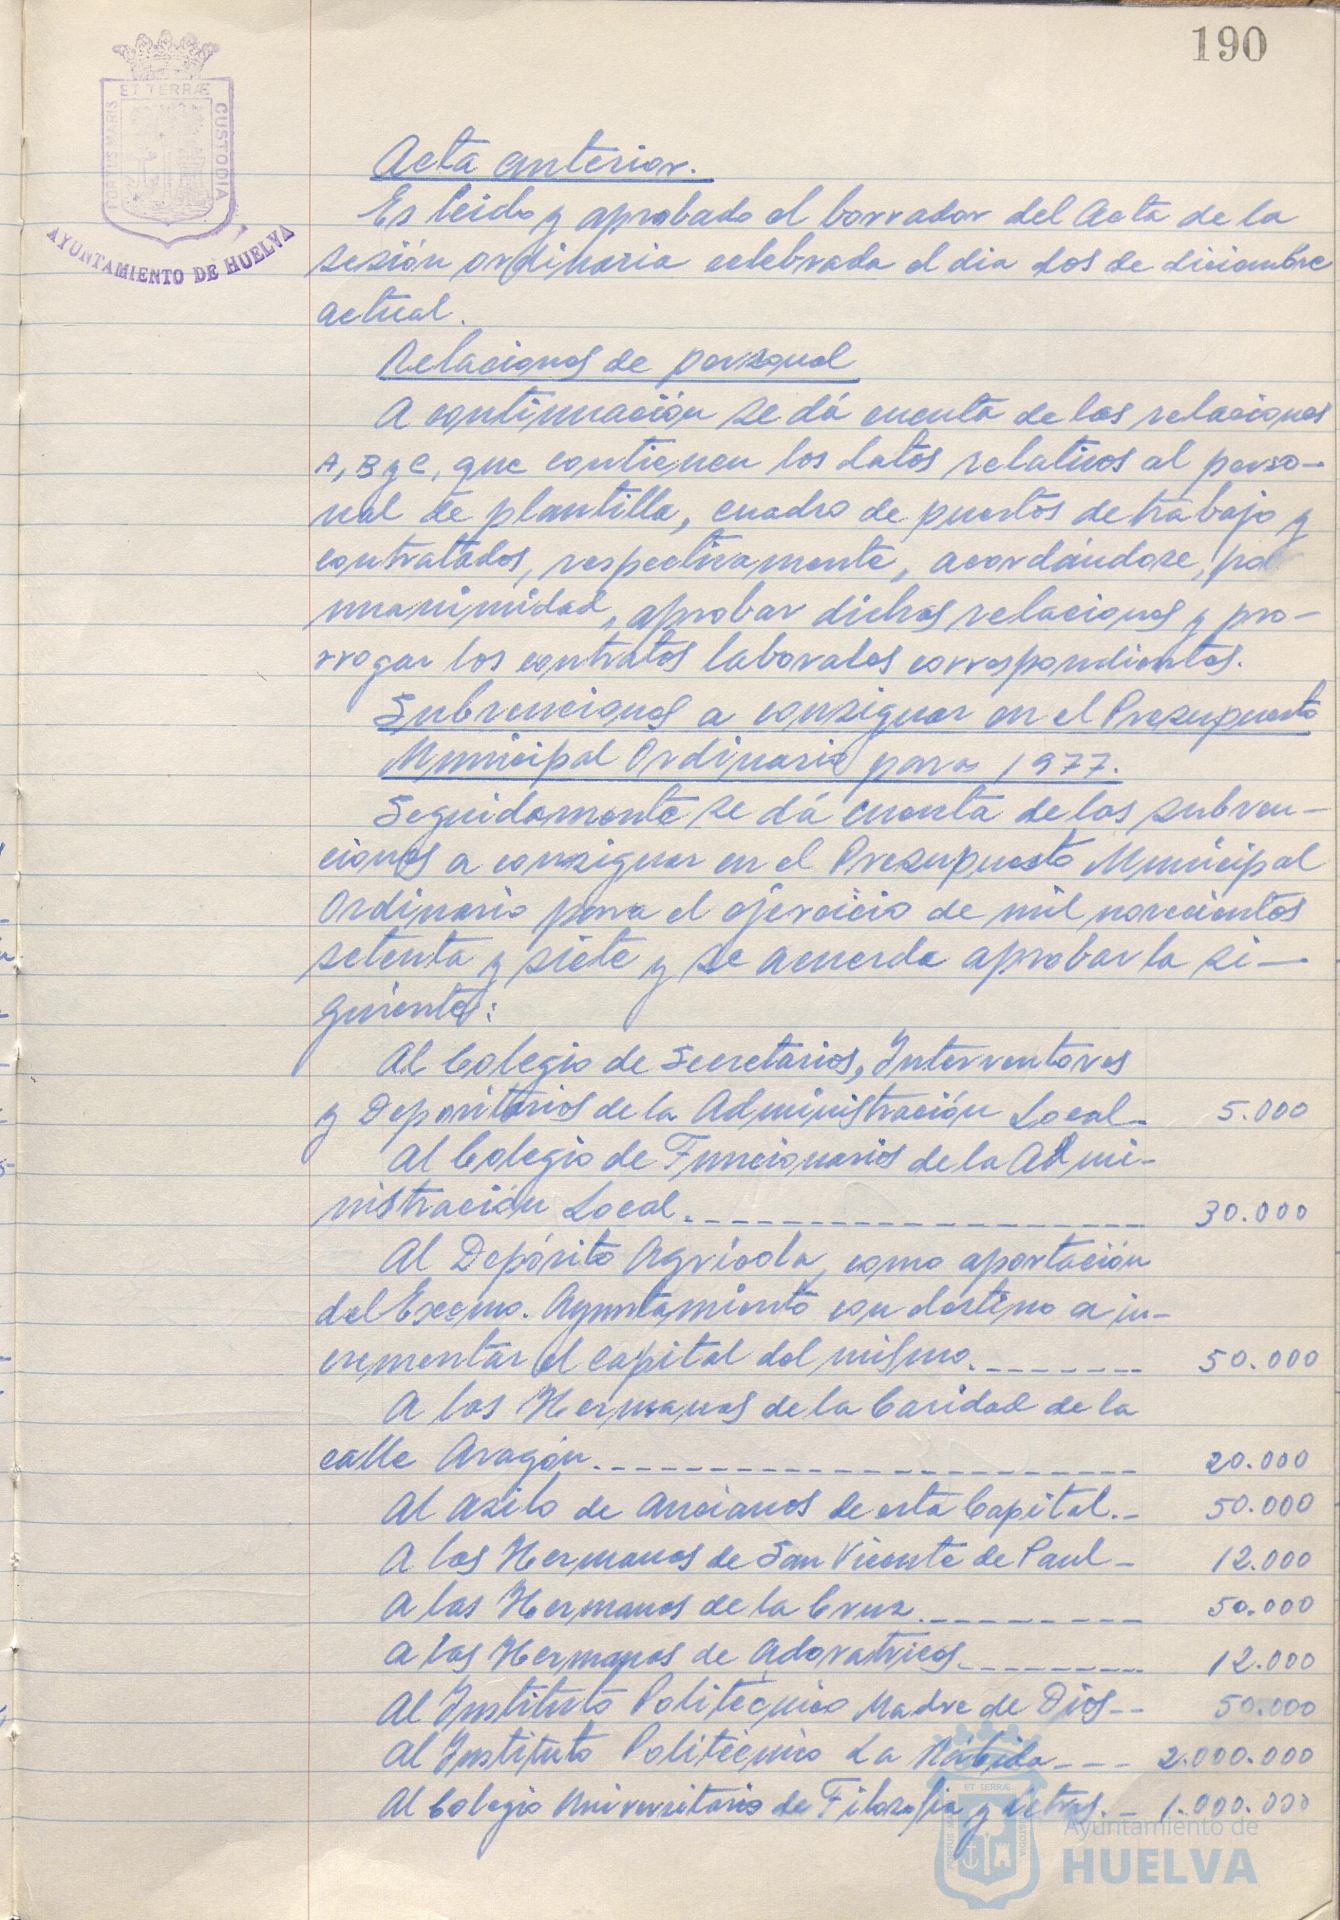 190
ET TERRÆ
PORTUS MARIS
CUSTODIA
AYUNTAMIENTO DE HUELVA
Acta anterior.
Es leido y aprobado el borrador del Acta de la
sesión ordinaria celebrada el dia dos de diciembre
actual.
Relaciones de personal
A continuación se dá cuenta de las relaciones
A, B y C, que contienen los datos relativos al perso-
nal de plantilla, cuadro de puestos de trabajo y
contratados, respectivamente, acordándose, por
unanimidad, aprobar dichas relaciones y pro-
rrogar los contratos laborales correspondientes.
Subvenciones a consignar en el Presupuesto
Municipal Ordinario para 1977.
Seguidamente se dá cuenta de las subven-
ciones a consignar en el Presupuesto Municipal
Ordinario para el ejercicio de mil novecientos
setenta y siete y se acuerda aprobar la si-
guientes:
Al Colegio de Secretarios, Interventores
y Depositarios de la Administración Local- 5.000
Al Colegio de Funcionarios de la Admi-
nistración Local. 30.000
Al Depósito Agrícola, como aportación
del Excmo. Ayuntamiento con destino a in-
crementar el capital del mismo. 50.000
A las Hermanas de la Caridad de la
calle Aragón. 20.000
Al Asilo de Ancianos de esta Capital.- 50.000
A las Hermanas de San Vicente de Paul- 12.000
A las Hermanas de la Cruz 50.000
A las Hermanas de Adoratrices 12.000
Al Instituto Politécnico Madre de Dios-- 50.000
Al Instituto Politécnico La Rábida--- 2.000.000
Al Colegio Universitario de Filosofia y Letras.- 1.000.000
ET TERRÆ
PORTUS MARIS
CUSTODIA
Ayuntamiento de
HUELVA